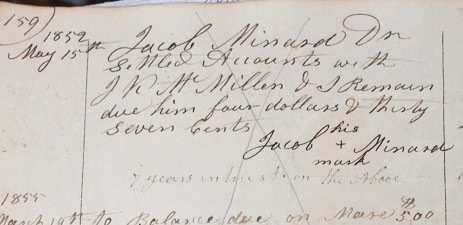 159)
1852 Jacob Minard Dr
May 15th Settled Accounts with
J W McMillen & I Remain
due him four dollars & thirty
Seven Cents
his
Jacob + Minard
mark
7 years intrest on the Above
1855
March 19th to Balance due on Mare $5.00